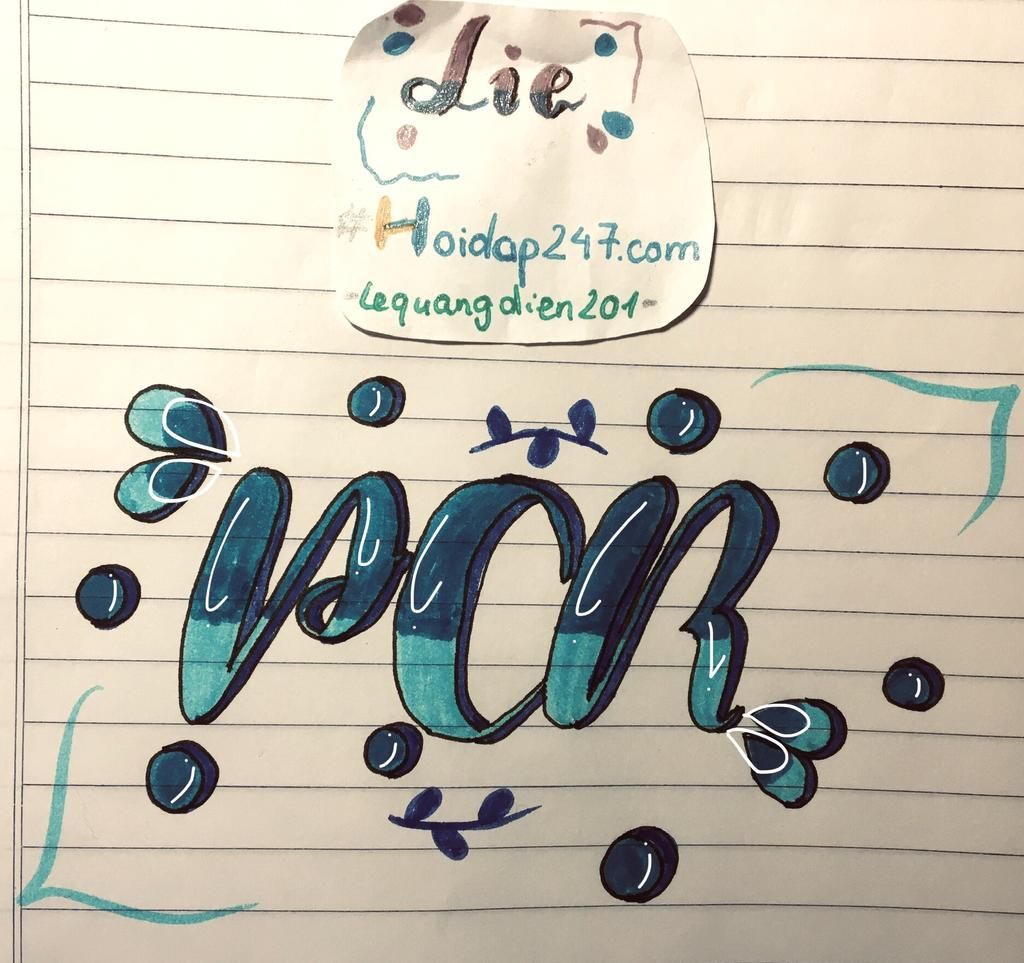 die
#Hoidap247.com
-lequangdien201-
PCR